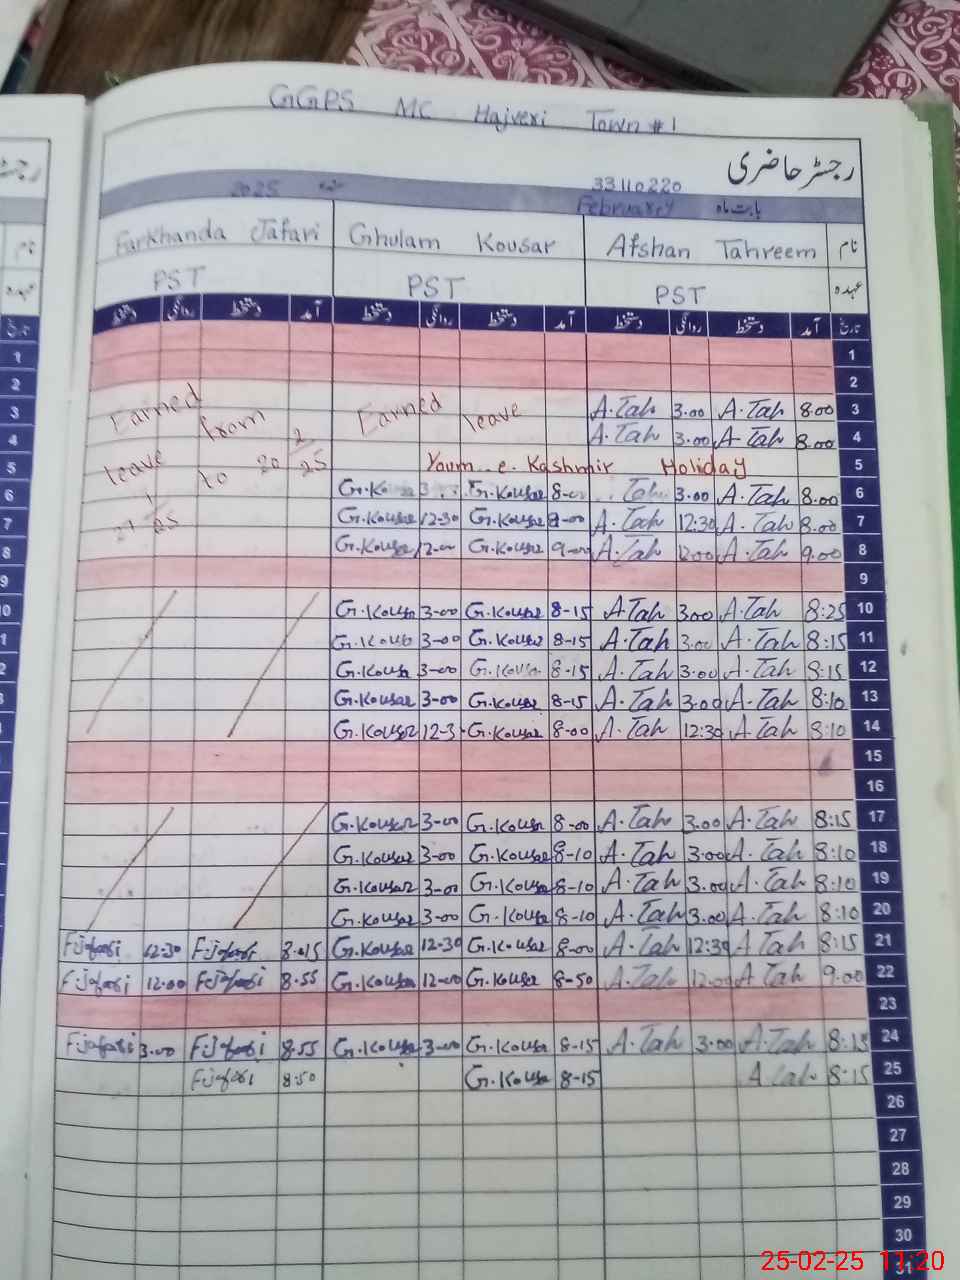 GGPS MC Hajveri Town #1
رجسٹر حاضری
2025 33110220
February بابت ماہ
Farkhanda Jafari Ghulam Kousar Afshan Tahreem نام
PST PST PST عہدہ
دستخط روانگی دستخط آمد دستخط روانگی دستخط آمد دستخط روانگی دستخط آمد تاریخ
1
2
Earned leave from to 20 2/25
Earned leave
A.Tah 3.00 A.Tah 8.00 3
A.Tah 3.00 A.Tah 8.00 4
Youm e. Kashmir Holiday 5
G.Ko G.Kousar Tah 3.00 A.Tah 8.00 6
G.Kousar 12-30 G.Kousar 8-00 A.Tah 12:30 A.Tah 8.00 7
G.Kousar 12-00 G.Kousar 9-00 A.Tah 12.00 A.Tah 9.00 8
9
G.Kousar 3-00 G.Kousar 8-15 A.Tah 3.00 A.Tah 8:25 10
G.Kousar 3-00 G.Kousar 8-15 A.Tah 3.00 A.Tah 8:15 11
G.Kousar 3-00 G.Kousar 8-15 A.Tah 3.00 A.Tah 8:15 12
G.Kousar 3-00 G.Kousar 8-15 A.Tah 3.00 A.Tah 8:10 13
G.Kousar 12-3 G.Kousar 8-00 A.Tah 12:30 A.Tah 8:10 14
15
16
G.Kousar 3-00 G.Kousar 8-00 A.Tah 3.00 A.Tah 8:15 17
G.Kousar 3-00 G.Kousar 8-10 A.Tah 3.00 A.Tah 8:10 18
G.Kousar 3-00 G.Kousar 8-10 A.Tah 3.00 A.Tah 8:10 19
G.Kousar 3-00 G.Kousar 8-10 A.Tah 3.00 A.Tah 8:10 20
F.jafari 12-30 F.jafari 8.45 G.Kousar 12-30 G.Kousar 8-00 A.Tah 12:30 A.Tah 8:15 21
F.jafari 12.00 F.jafari 8.55 G.Kousar 12-00 G.Kousar 8-50 A.Tah 12.00 A.Tah 9.00 22
23
F.jafari 3.00 F.jafari 8.55 G.Kousar 3-00 G.Kousar 8-15 A.Tah 3.00 A.Tah 8:15 24
F.jafari 8.50 G.Kousa 8-15 A.Tah 8:15 25
26
27
28
29
30
31
25-02-25 11:20